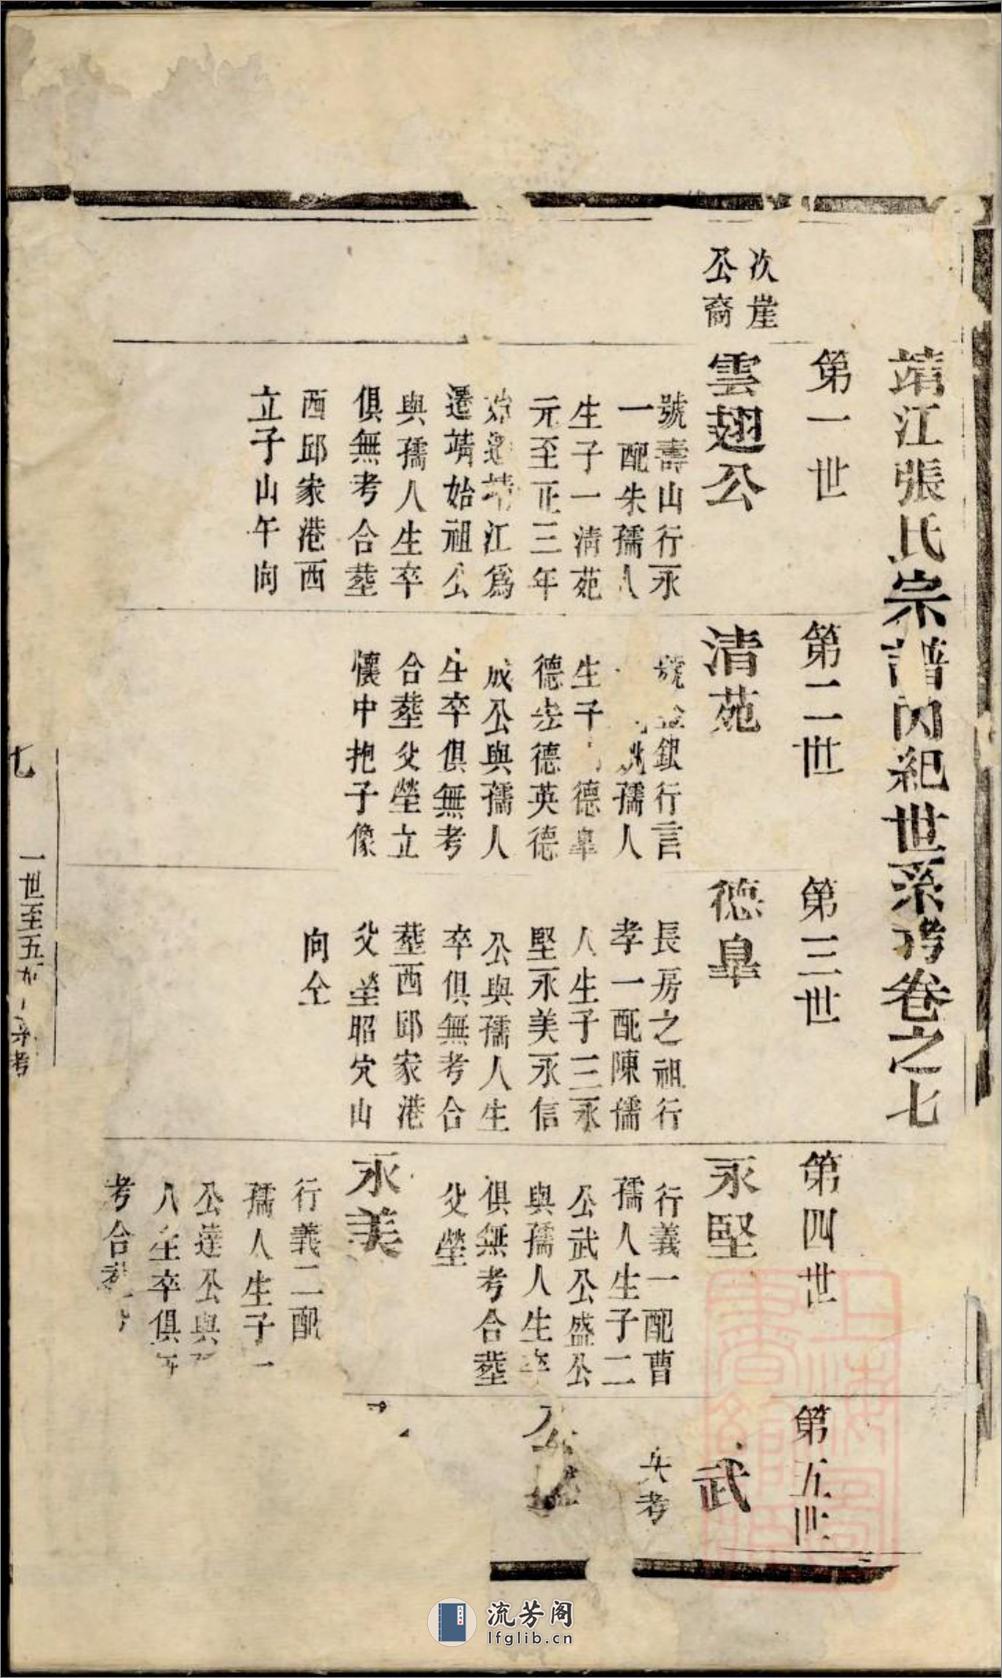 靖江張氏宗譜內紀世系考卷之七
第一世
第二世
第三世
第四世
第五世
次崖
公裔
雲翅公
號壽山行永
一配朱孺人
生子一清苑
元至正三年
始遷靖江爲
遷靖始祖公
與孺人生卒
俱無考合塟
西邱家港西
立子山午向
清苑
號 銀行言
姚孺人
生子 德臯
德 德英德
成公與孺人
生卒俱無考
合塟父塋立
懷中抱子像
德臯
長房之祖行
孝一配陳孺
人生子三永
堅永美永信
公與孺人生
卒俱無考合
塟西邱家港
父塋昭穴山
向仝
永堅
行義一配曹
孺人生子二
公武公盛公
與孺人生卒
俱無考合塟
父塋
永美
行義二配
孺人生子一
公達公與孺
人生卒俱無
考合塟
武
考
公
七
一世至五 考
流芳阁
lfglib.cn